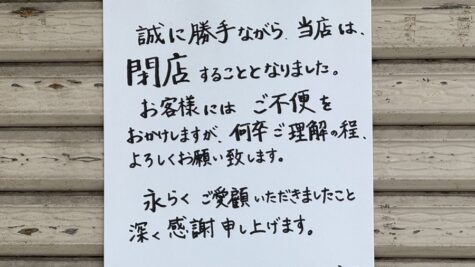 誠に勝手ながら、当店は、
閉店することとなりました。
お客様には ご不便を
おかけしますが、何卒ご理解の程、
よろしくお願い致します。
永らく ご愛顧いただきましたこと
深く感謝申し上げます。